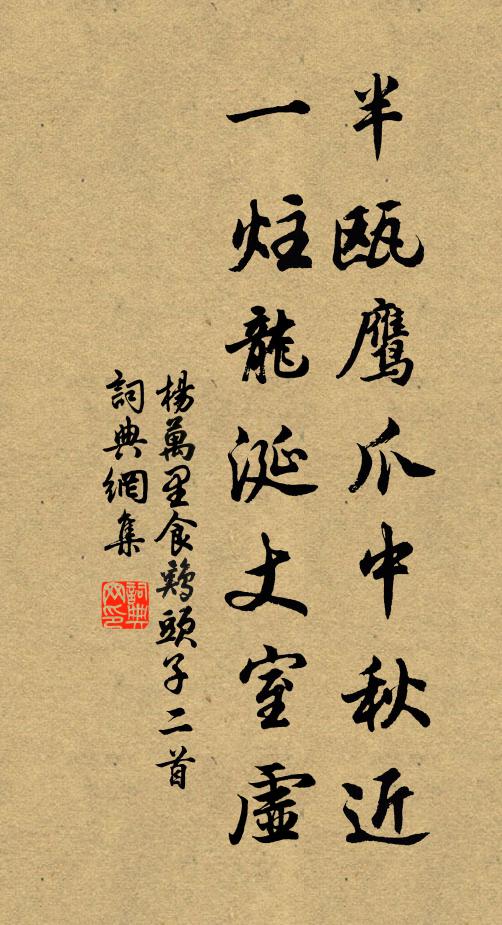 半甌鷹爪中秋近
一炷龍涎丈室虛
楊萬里食鷄頭子二首
詞典網集
詞典網印